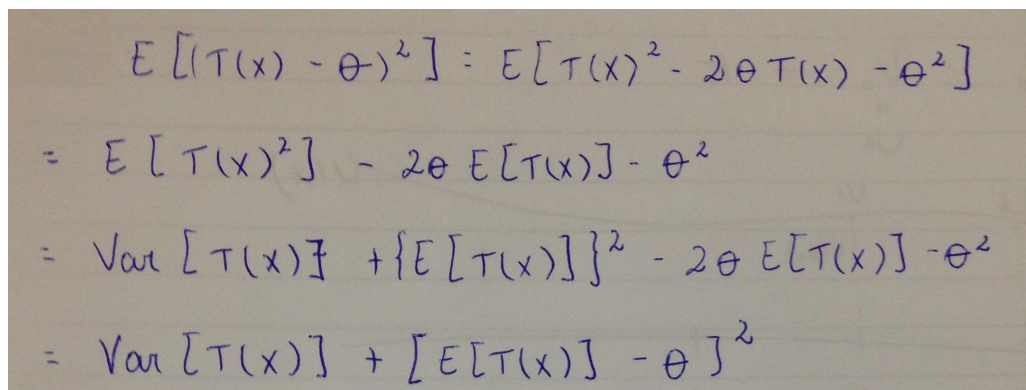 E[(T(x) - θ)²] = E[T(x)² - 2θT(x) - θ²]
= E[T(x)²] - 2θ E[T(x)] - θ²
= Var[T(x)] + {E[T(x)]}² - 2θ E[T(x)] - θ²
= Var[T(x)] + [E[T(x)] - θ]²